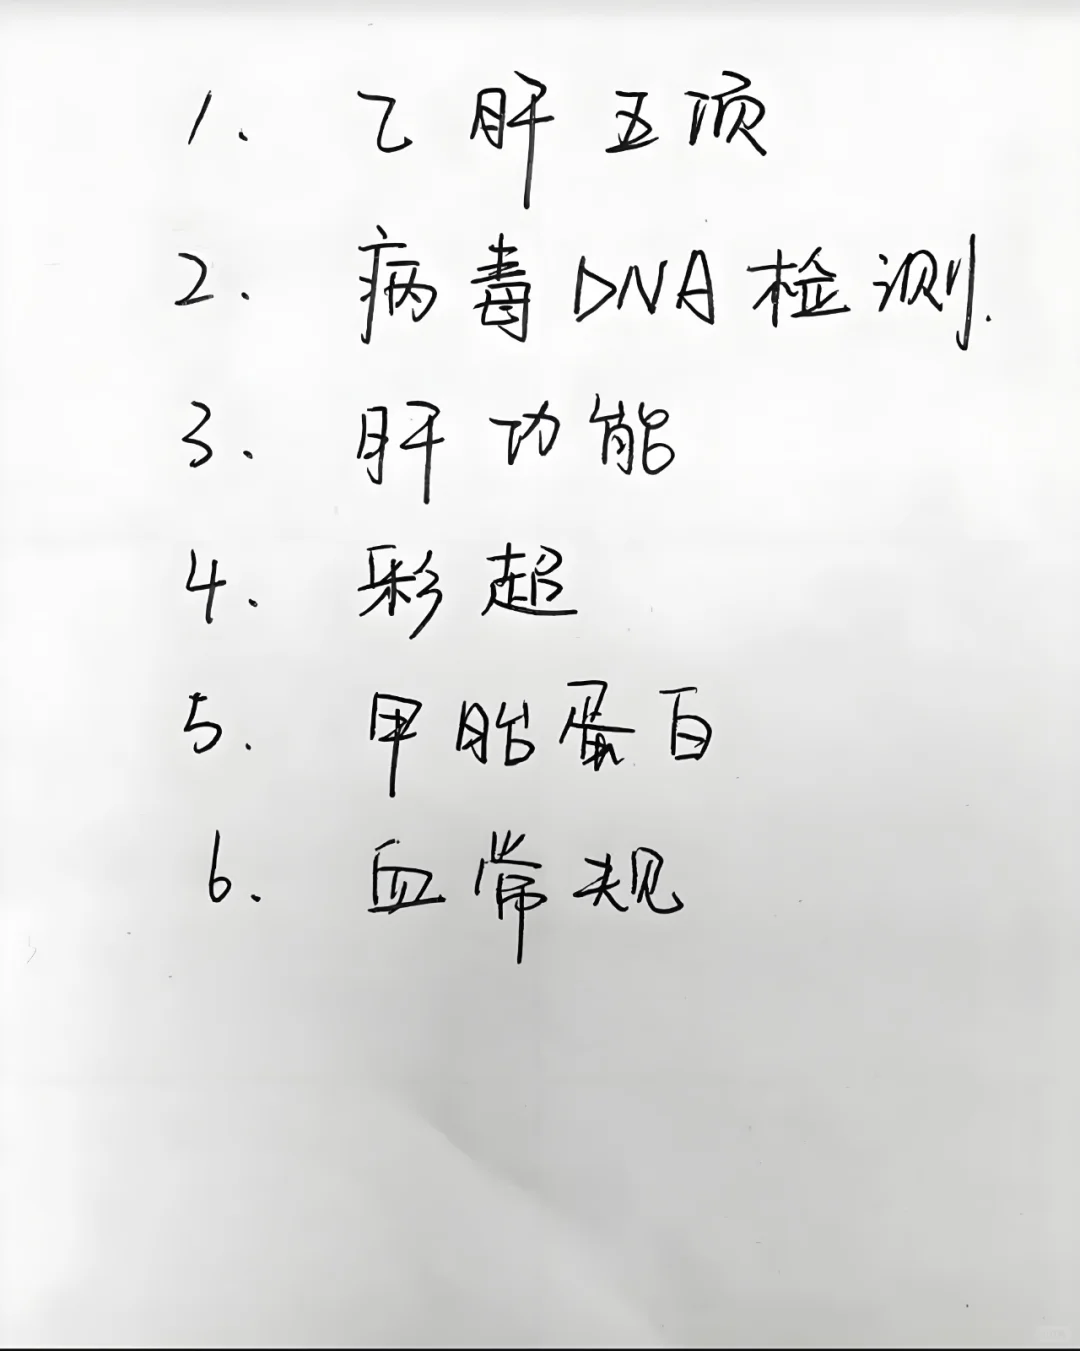 1. 乙肝五项
2. 病毒DNA检测.
3. 肝功能
4. 彩超
5. 甲胎蛋白
6. 血常规